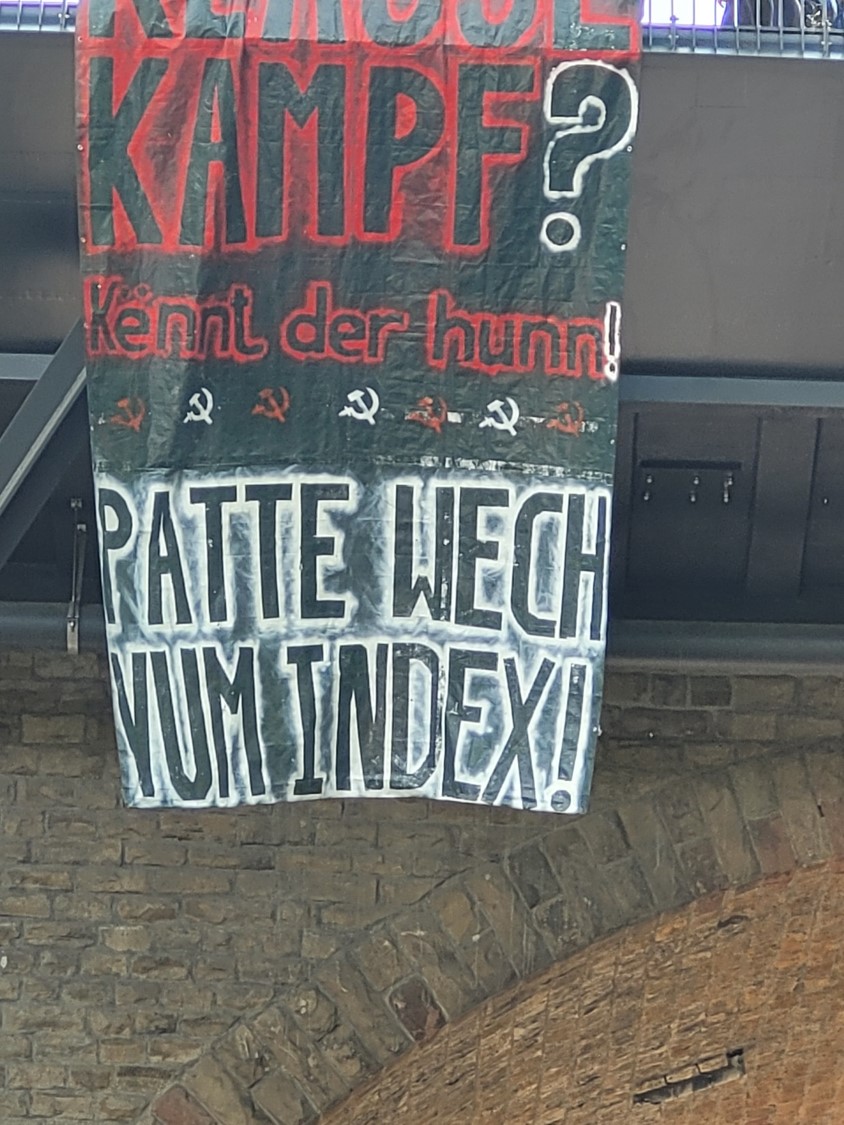 KLASSE
KAMPF?
Kënnt der hunn!
PATTE WECH
VUM INDEX!